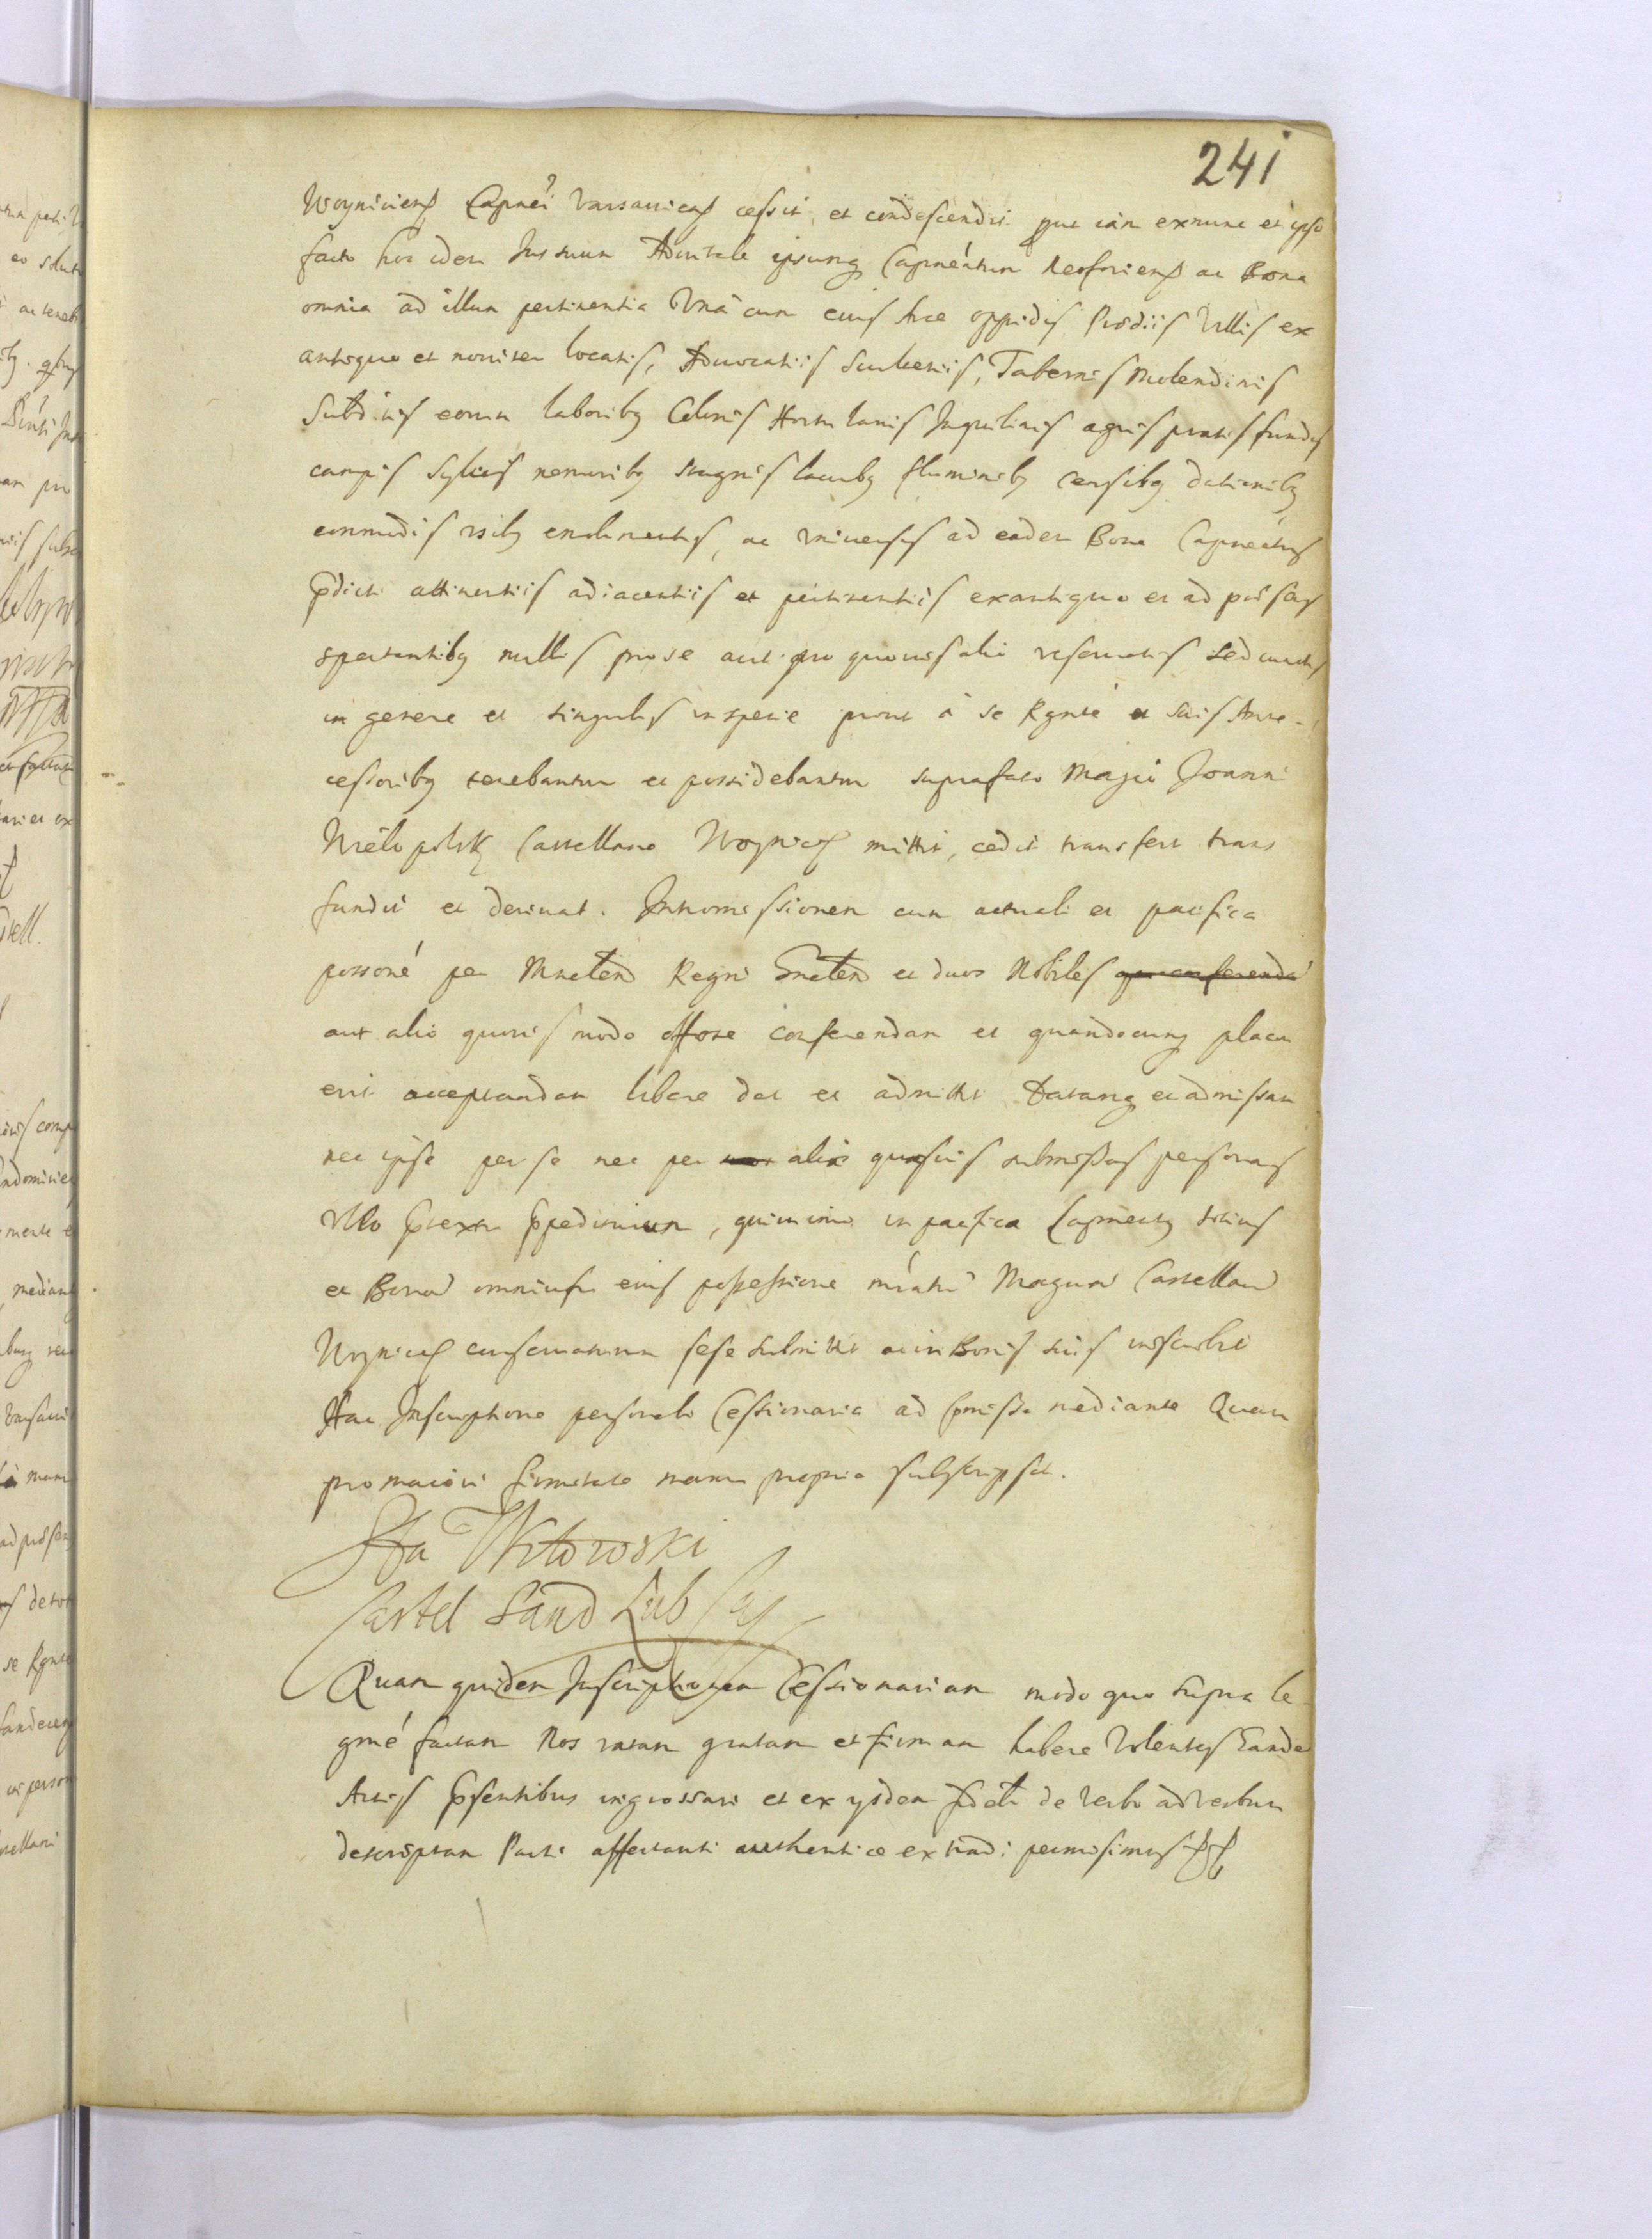 241
Woyniciens Capnei Varsauiens cessit et condescendit put iam exnunc et ipso
facto hoc idem Jus suum Aduitale ipsumq Capneatum Neoforiens ac Bona
omnia ad illum pertinentia Vna cum eius Arce oppidis Prediis Villis ex
antiquo et nouiter locatis, Aduocatiis Scultetiis, Tabernis Molendinis
Subditis eorum laboribq Colonis Hortulanis Inquilinis agris pratis fundis
campis Syluis nemoribq stagnis lacubq fluminibq Censibq dationibq
commodis vsibq emolimentis, ac Vniuersis ad eadem Bona Capneatus
pdicti attinentiis adiacentiis et pertinentiis exantiquo et ad pns
spectantibq nullis pro se aut pro quouis alio reseruatis sed cunctis
in genere et singulis in specie prout à se Rgnte et suis Ante-
cessoribq tenebantur et possidebantur suprafato Mагco Joanni
Wielopolsky Castellano Woynices mittit, cedit transfert trans
fundit et deriuat. Intromissionem cum actuali et pacifica
possone per Mnrlem Regni Gnrlem et duos Nobiles
aut alio quouis modo offore conferendam et quandocunq placu
erit acceptandam libere dat et admittit Datamq et admissam
nec ipse per se nec per alias quasuis submissas personas
Vllo ptextu ppediturum, quinimo in pacifica Capneatq totius
et Bonor omnium eius possessione mrati Magcum Castellanu
Woynices conseruaturum sese submittit ac in Bonis suis inscribit
Hac Inscriptione personali Cessionaria ad pmissa mediante Quam
pro maiori firmitate manu propria subscripsit.
Sta Witowski
Castel Sand Lub Cas
Quam quidem Inscriptionem Cessionariam modo quo supra le-
gme factam Nos ratam gratam et firmam habere Volentes Eande
Actis psentibus ingrossari et ex ysdem de Verbo ad Verbum
descriptam Parti affectanti authentice extradi permisimus